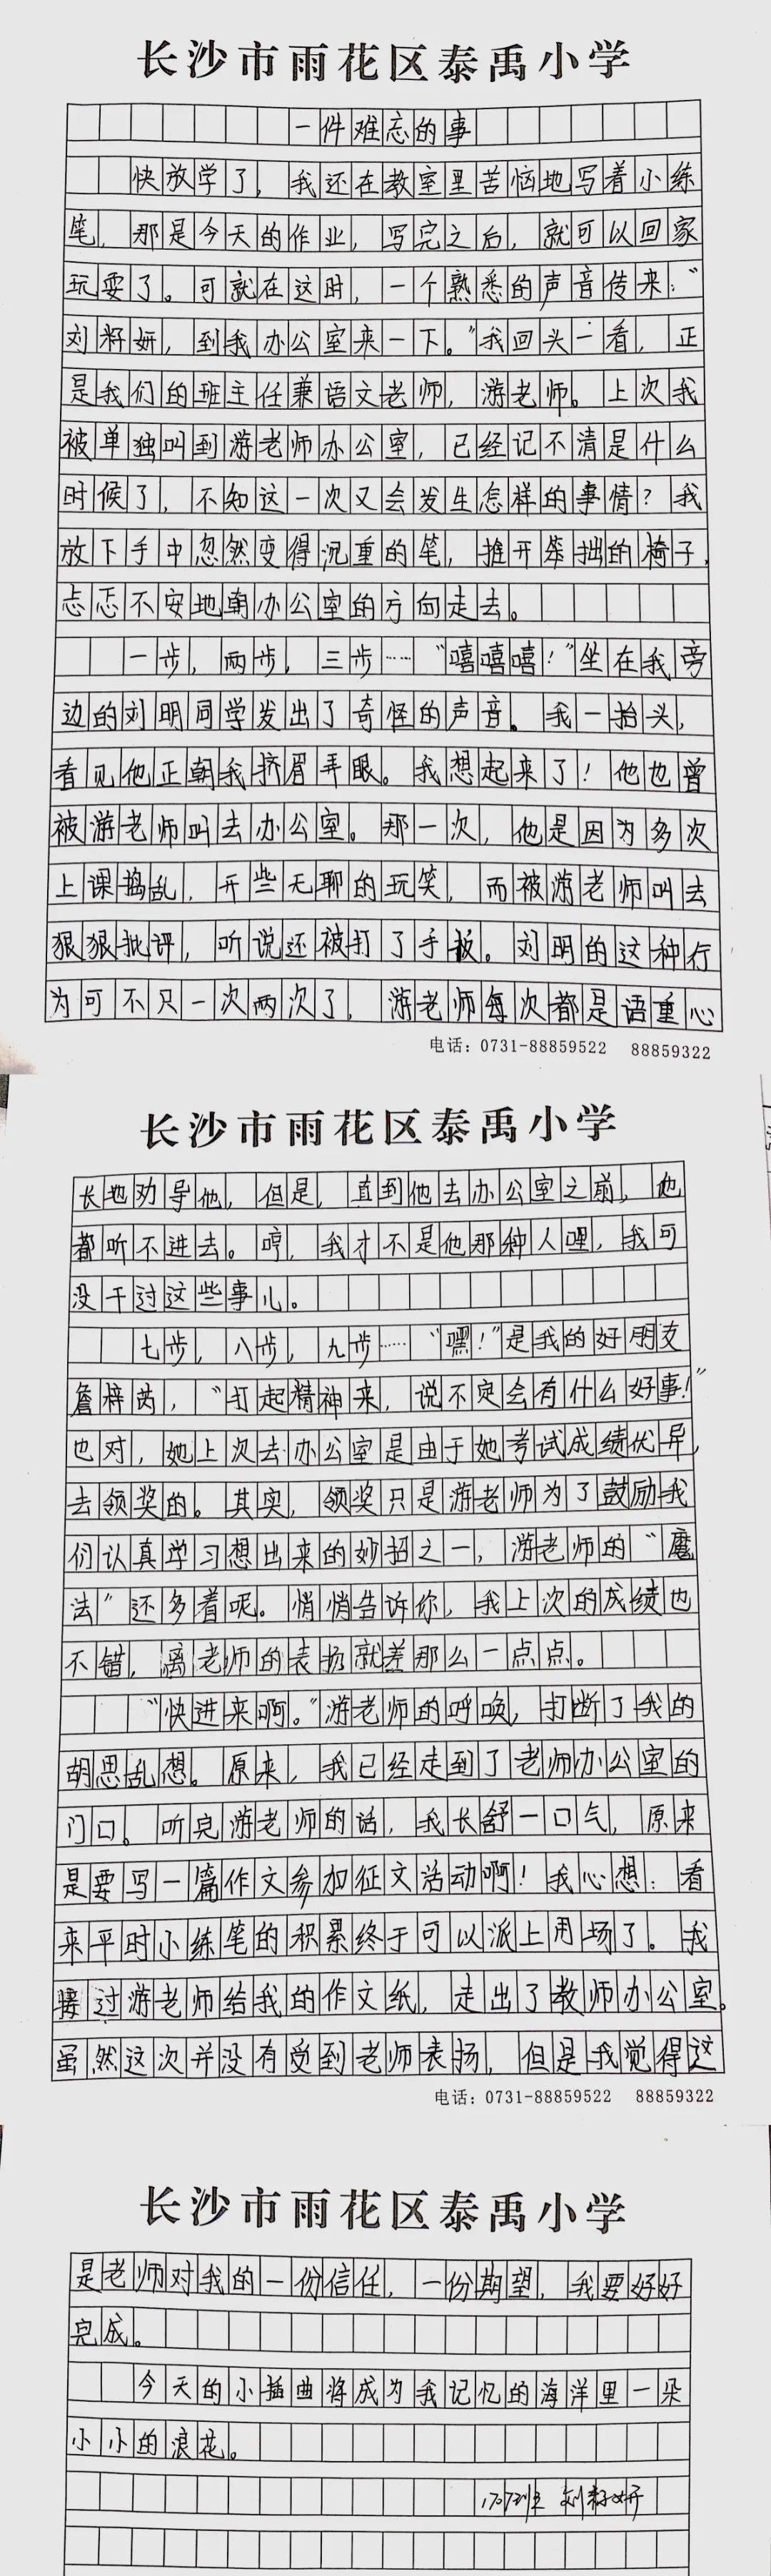 长沙市雨花区泰禹小学
一件难忘的事
快放学了，我还在教室里苦恼地写着小练
笔，那是今天的作业，写完之后，就可以回家
玩耍了。可就在这时，一个熟悉的声音传来：“
刘籽妍，到我办公室来一下。”我回头一看，正
是我们的班主任兼语文老师，游老师。上次我
被单独叫到游老师办公室，已经记不清是什么
时候了，不知这一次又会发生怎样的事情？我
放下手中忽然变得沉重的笔，推开笨拙的椅子，
忐忑不安地朝办公室的方向走去。
一步，两步，三步……“嘻嘻嘻！”坐在我旁
边的刘明同学发出了奇怪的声音。我一抬头，
看见他正朝我挤眉弄眼。我想起来了！他也曾
被游老师叫去办公室。那一次，他是因为多次
上课捣乱，开些无聊的玩笑，而被游老师叫去
狠狠批评，听说还被打了手板。刘明的这种行
为可不只一次两次了，游老师每次都是语重心
电话：0731-88859522 88859322
长沙市雨花区泰禹小学
长地劝导他，但是，直到他去办公室之前，他
都听不进去。哼，我才不是他那种人哩，我可
没干过这些事儿。
七步，八步，九步……“嘿！”是我的好朋友
詹梓芮，“打起精神来，说不定会有什么好事！”
也对，她上次去办公室是由于她考试成绩优异，
去领奖的。其实，领奖只是游老师为了鼓励我
们认真学习想出来的妙招之一，游老师的“魔
法”还多着呢。悄悄告诉你，我上次的成绩也
不错，离老师的表扬就差那么一点点。
“快进来啊。”游老师的呼唤，打断了我的
胡思乱想。原来，我已经走到了老师办公室的
门口。听完游老师的话，我长舒一口气，原来
是要写一篇作文参加征文活动啊！我心想：看
来平时小练笔的积累终于可以派上用场了。我
接过游老师给我的作文纸，走出了教师办公室。
虽然这次并没有受到老师表扬，但是我觉得这
电话：0731-88859522 88859322
长沙市雨花区泰禹小学
是老师对我的一份信任，一份期望，我要好好
完成。
今天的小插曲将成为我记忆的海洋里一朵
小小的浪花。
1707班 刘籽妍